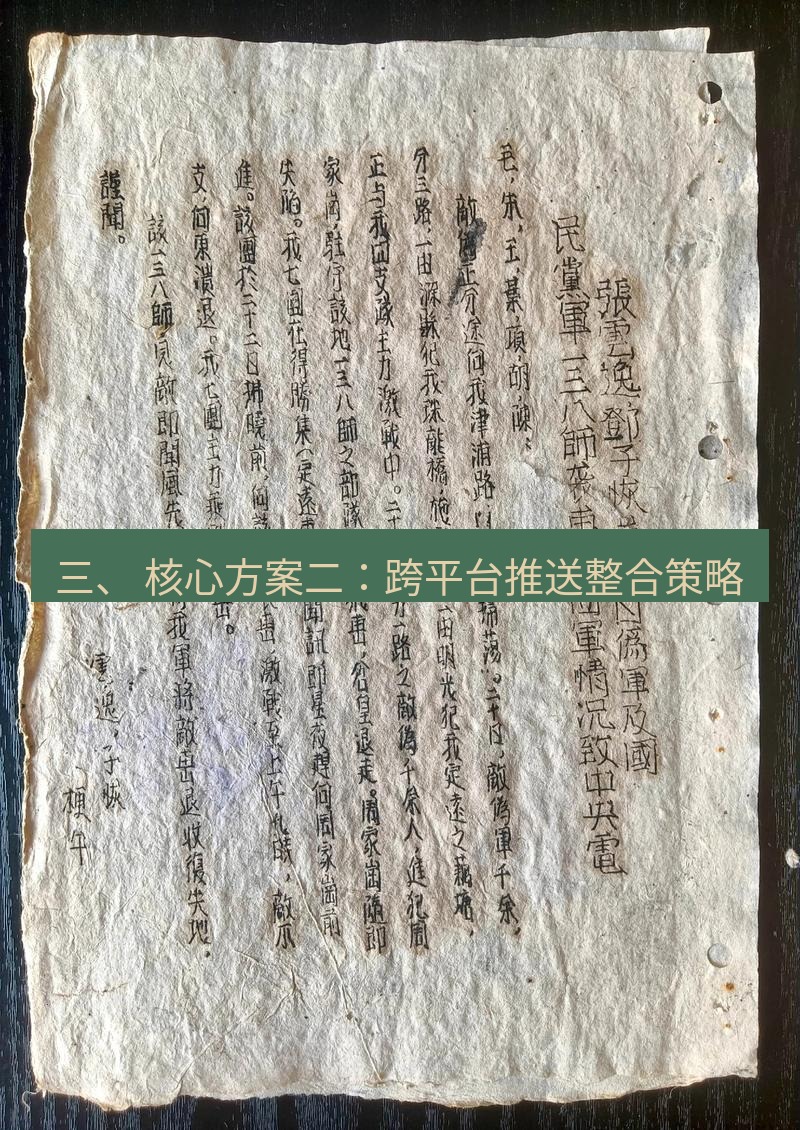 張雲逸鄧子恢
偽軍及國
民黨軍一三八師襲
軍情況致中央電
毛，朱，王，葉，項，胡，陳：
敵
正分途向我津浦路
掃蕩。二十日，敵偽軍千余，
分三路，一由滁縣犯我珠龍橋，施
一由明光犯我定遠之藕塘，
正与我四支隊主力激戰中。二十
一路之敵偽千余人，進犯周
家崗，駐守該地一三八師之部隊
我击，倉皇退走。周家崗隨即
失陷。我七團在得勝集（定遠
聞訊即星夜趕向周家崗前
進。該團於二十二日拂曉前，向該
击，激戰至上午九時，敵不
支，向東潰退。我七團主力乘
击。
該一三八師，見敵即聞風先
我軍將敵击退收復失地，
謹聞。
雲逸，子恢
梗午
三、 核心方案二：跨平台推送整合策略